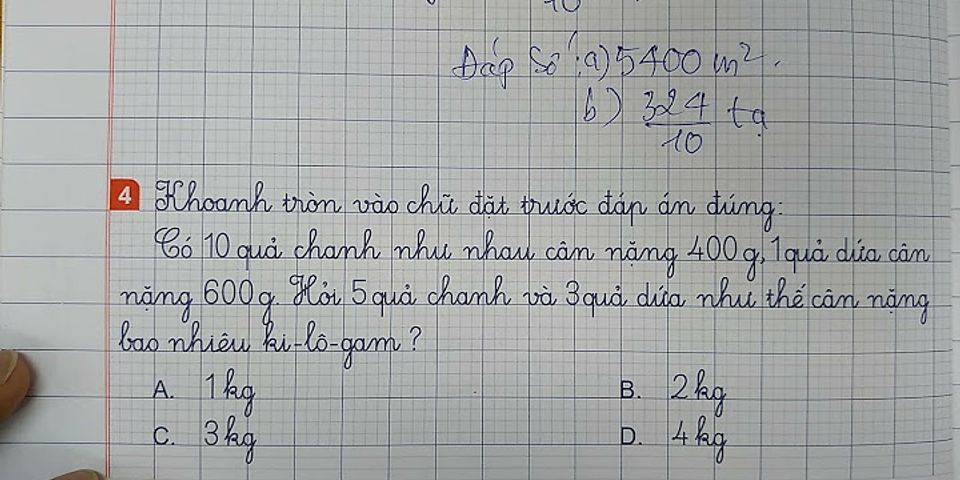 10
Đáp số: a) 5400 m².
b) 324/10 tạ
4 Khoanh tròn vào chữ đặt trước đáp án đúng:
Có 10 quả chanh như nhau cân nặng 400 g, 1 quả dứa cân
nặng 600 g. Hỏi 5 quả chanh và 3 quả dứa như thế cân nặng
bao nhiêu ki-lô-gam?
A. 1 kg B. 2 kg
C. 3 kg D. 4 kg